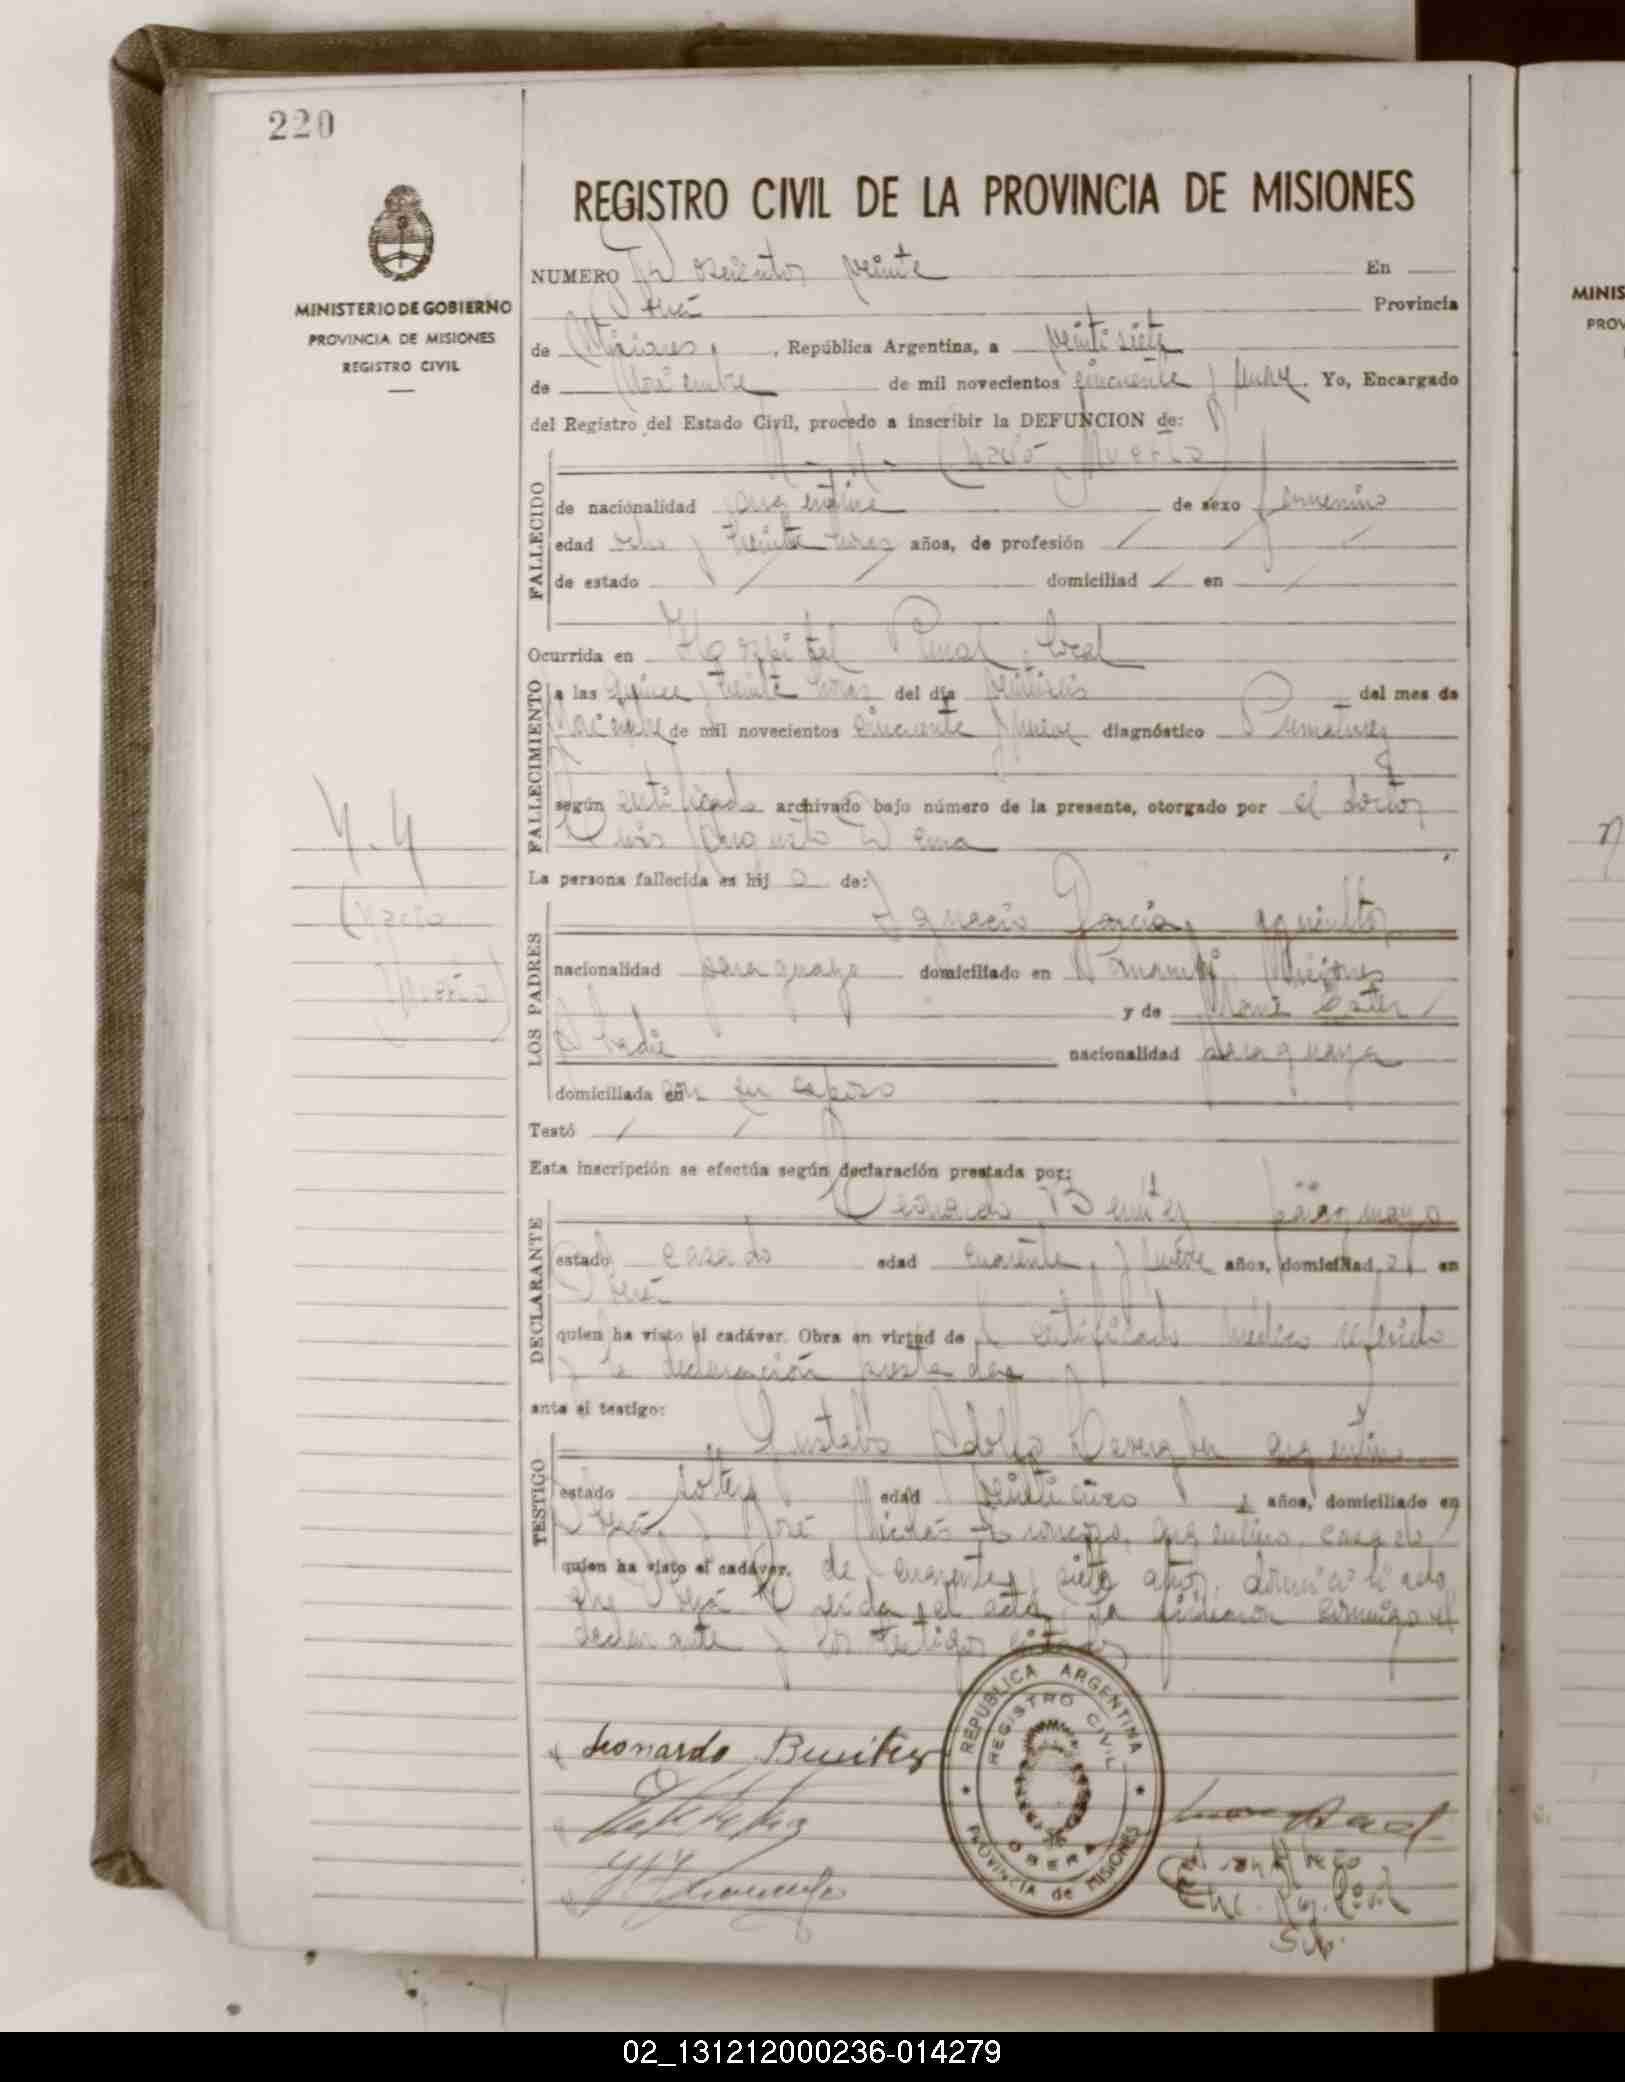 220
REGISTRO CIVIL DE LA PROVINCIA DE MISIONES
MINISTERIO DE GOBIERNO
PROVINCIA DE MISIONES
REGISTRO CIVIL
NUMERO Doscientos veinte En
Oberá Provincia
de Misiones, República Argentina, a veintisiete
de Noviembre de mil novecientos cincuenta y nueve. Yo, Encargado
del Registro del Estado Civil, procedo a inscribir la DEFUNCION de:
N. N. (nació Muerta)
FALLECIDO
de nacionalidad argentina de sexo femenino
edad ocho y treinta horas años, de profesión
de estado domiciliad en
Ocurrida en Hospital Rural, local
FALLECIMIENTO
a las quince y treinta horas del día veintiseis del mes de
Noviembre de mil novecientos cincuenta y nueve diagnóstico Prematurez
según certificado archivado bajo número de la presente, otorgado por el doctor
Luis Augusto Derna
N.N
(nació
Muerta)
La persona fallecida es hij a de:
LOS PADRES
Ignacio García, agricultor
nacionalidad paraguayo domiciliado en Panambí, Misiones
y de María Ester
nacionalidad paraguaya
domiciliada en con su esposo
Testó
Esta inscripción se efectúa según declaración prestada por:
DECLARANTE
Leonardo Benítez paraguayo
estado casado edad cuarenta y nueve años, domiciliad o en
Oberá
quien ha visto el cadáver. Obra en virtud de el certificado médico referido
y la declaración prestada
ante el testigo:
TESTIGO
Gustavo Adolfo argentino
estado soltero edad veinticinco años, domiciliado en
Oberá, y José Nicolás argentino, casado,
quien ha visto el cadáver. de cuarenta y siete años, domiciliado
en Oberá. Leída el acta, la firmaron conmigo el
declarante y los testigos citados
Leonardo Benítez
REPUBLICA ARGENTINA
REGISTRO CIVIL
OBERA
PROVINCIA de MISIONES
Enc. Reg. Civil
Sup.
MINIS
PROV
02_131212000236-014279